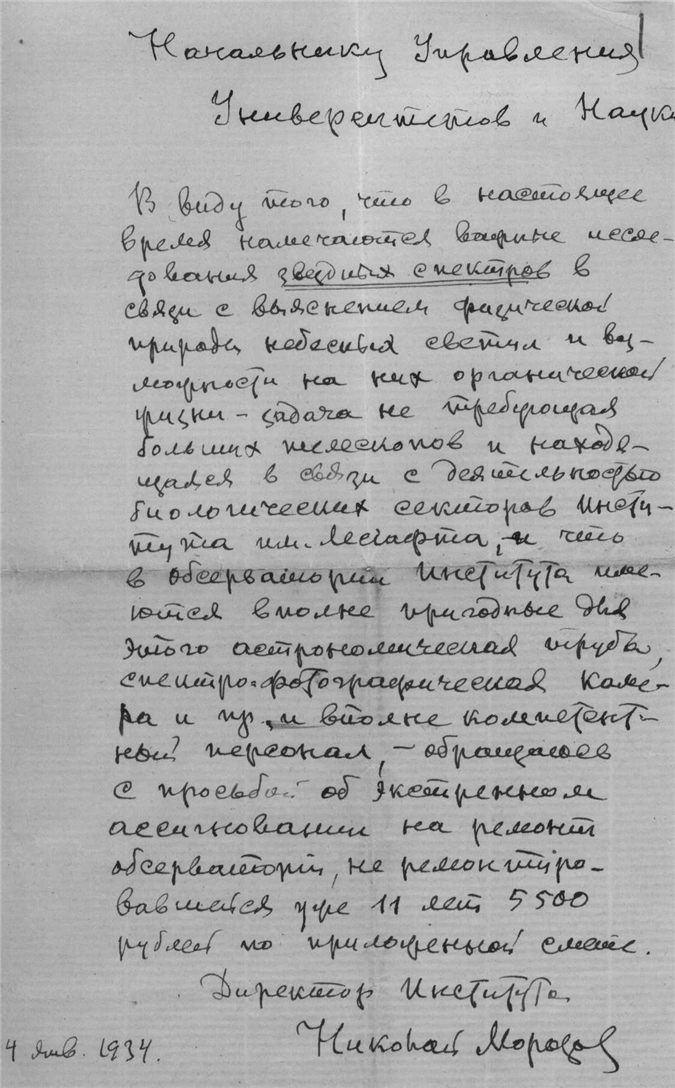 Начальнику Управления
Университетов и Науки
В виду того, что в настоящее
время намечаются важные иссле-
дования звездных спектров в
связи с выяснением физической
природы небесных светил и воз-
можности на них органической
жизни – задача не требующая
больших телескопов и находя-
щаяся в связи с деятельностью
биологических секторов Инсти-
тута им. Лесгафта, и что
в обсерватории Института име-
ются вполне пригодные для
этого астрономическая труба,
спектро-фотографическая каме-
ра и пр. и вполне компетент-
ный персонал, – обращаюсь
с просьбой об экстренном
ассигновании на ремонт
обсерватории, не ремонтиро-
вавшейся уже 11 лет 5500
рублей по приложенной смете.
Директор Института
Николай Морозов
4 янв. 1934.